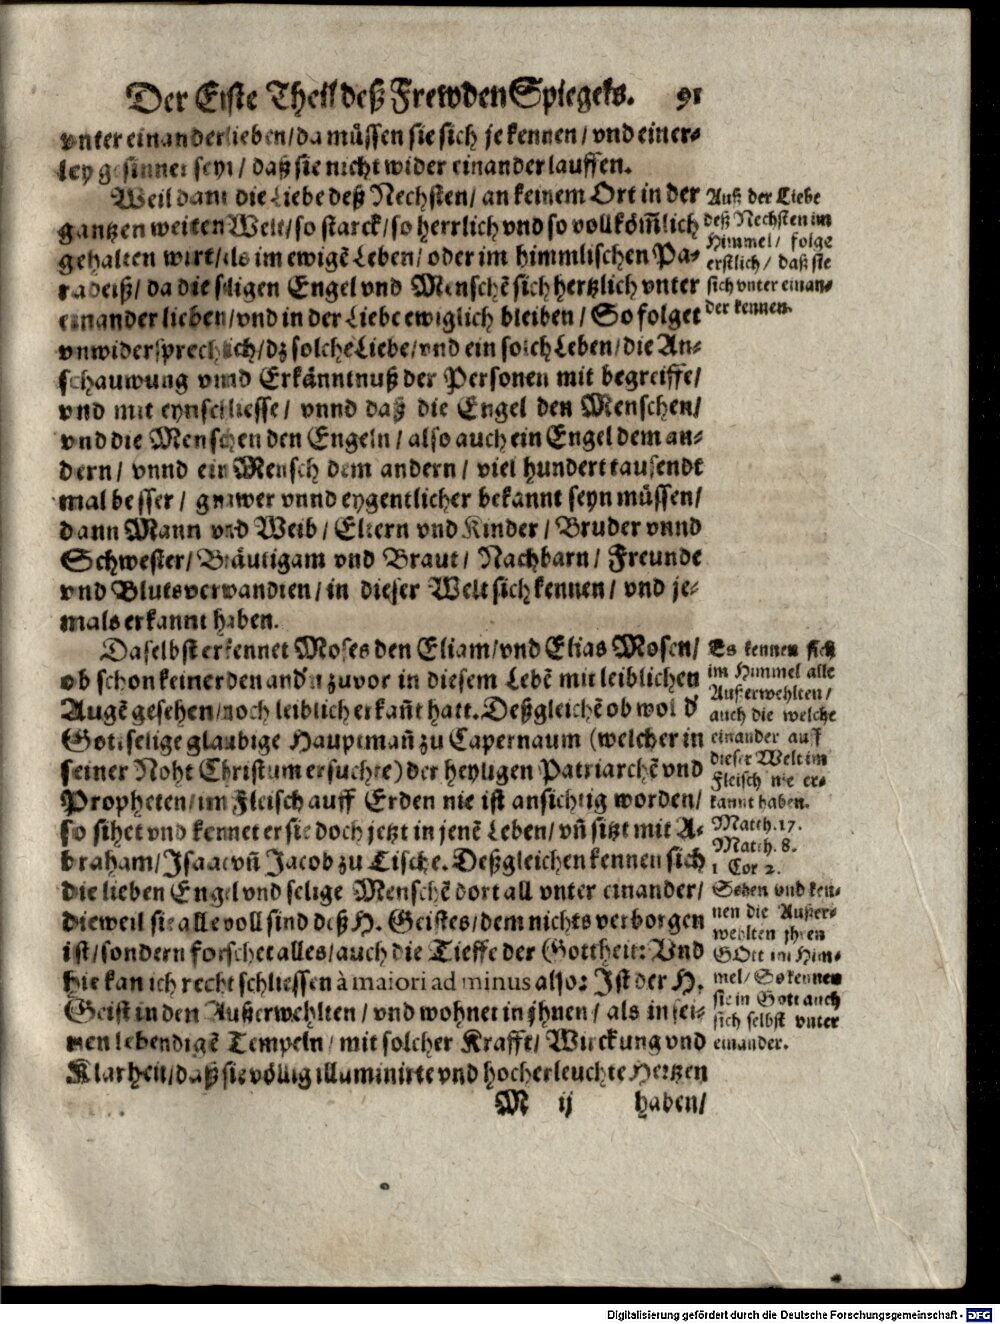 Der Erste Theil deß Frewden Spiegels. 91
vnter einander lieben/ da müssen sie sich je kennen/ vnd einer-
ley gesinnet seyn/ daß sie nicht wider einander lauffen.
Weil dann die Liebe deß Nechsten/ an keinem Ort in der
gantzen weiten Welt/ so starck/ so herrlich vnd so vollköm̃lich
gehalten wirt/ als im ewigẽ Leben/ oder im himmlischen Pa-
radeiß/ da die seligen Engel vnd Menschẽ sich hertzlich vnter
einander lieben/ vnd in der Liebe ewiglich bleiben/ So folget
vnwidersprechlich/ dz solche Liebe/ vnd ein solch Leben/ die An-
schauwung vnnd Erkänntnuß der Personen mit begreiffe/
vnd mit eynschliesse/ vnnd daß die Engel den Menschen/
vnd die Menschen den Engeln/ also auch ein Engel dem an-
dern/ vnnd ein Mensch dem andern/ viel hundert tausendt
mal besser/ gnawer vnnd eygentlicher bekannt seyn müssen/
dann Mann vnd Weib/ Eltern vnd Kinder/ Bruder vnnd
Schwester/ Bräutigam vnd Braut/ Nachbarn/ Freunde
vnd Blutsverwandten/ in dieser Welt sich kennen/ vnd je-
mals erkannt haben.
Daselbst erkennet Moses den Eliam/ vnd Elias Mosen/
ob schon keiner den andern zuvor in diesem Lebẽ mit leiblichen
Augẽ gesehen/ noch leiblich erkañt hatt. Deßgleichẽ ob wol d'
Gottselige glaubige Hauptmañ zu Capernaum (welcher in
seiner Noht Christum ersuchte) der heyligen Patriarchẽ vnd
Propheten/ im Fleisch auff Erden nie ist ansichtig worden/
so sihet vnd kennet er sie doch jetzt in jenẽ Leben/ vñ sitzt mit A-
braham/ Isaac vñ Jacob zu Tische. Deßgleichen kennen sich
die lieben Engel vnd selige Menschẽ dort all vnter einander/
dieweil sie alle voll sind deß H. Geistes/ dem nichts verborgen
ist/ sondern forschet alles/ auch die Tieffe der Gottheit: Vnd
hie kan ich recht schliessen à maiori ad minus also: Ist der H.
Geist in den Außerwehlten/ vnd wohnet in jhnen/ als in sei-
nen lebendigẽ Tempeln/ mit solcher Krafft/ Wirckung vnd
Klarheit/ daß sie völlig illuminirte vnd hocherleuchte Hertzen
M ij haben/
Auß der Liebe
deß Nechsten im
Himmel/ folge
erstlich/ daß sie
sich vnter einan-
der kennen.
Es kennen sich
im Himmel alle
Außerwehlten/
auch die welche
einander auff
dieser Welt im
Fleisch nie er-
kannt haben.
Matth. 17.
Matth. 8.
1 Cor 2.
Sehen vnd ken-
nen die Außer-
wehlten jhren
GOtt im Him-
mel/ So kennen
sie in Gott auch
sich selbst vnter
einander.
Digitalisierung gefördert durch die Deutsche Forschungsgemeinschaft - DFG